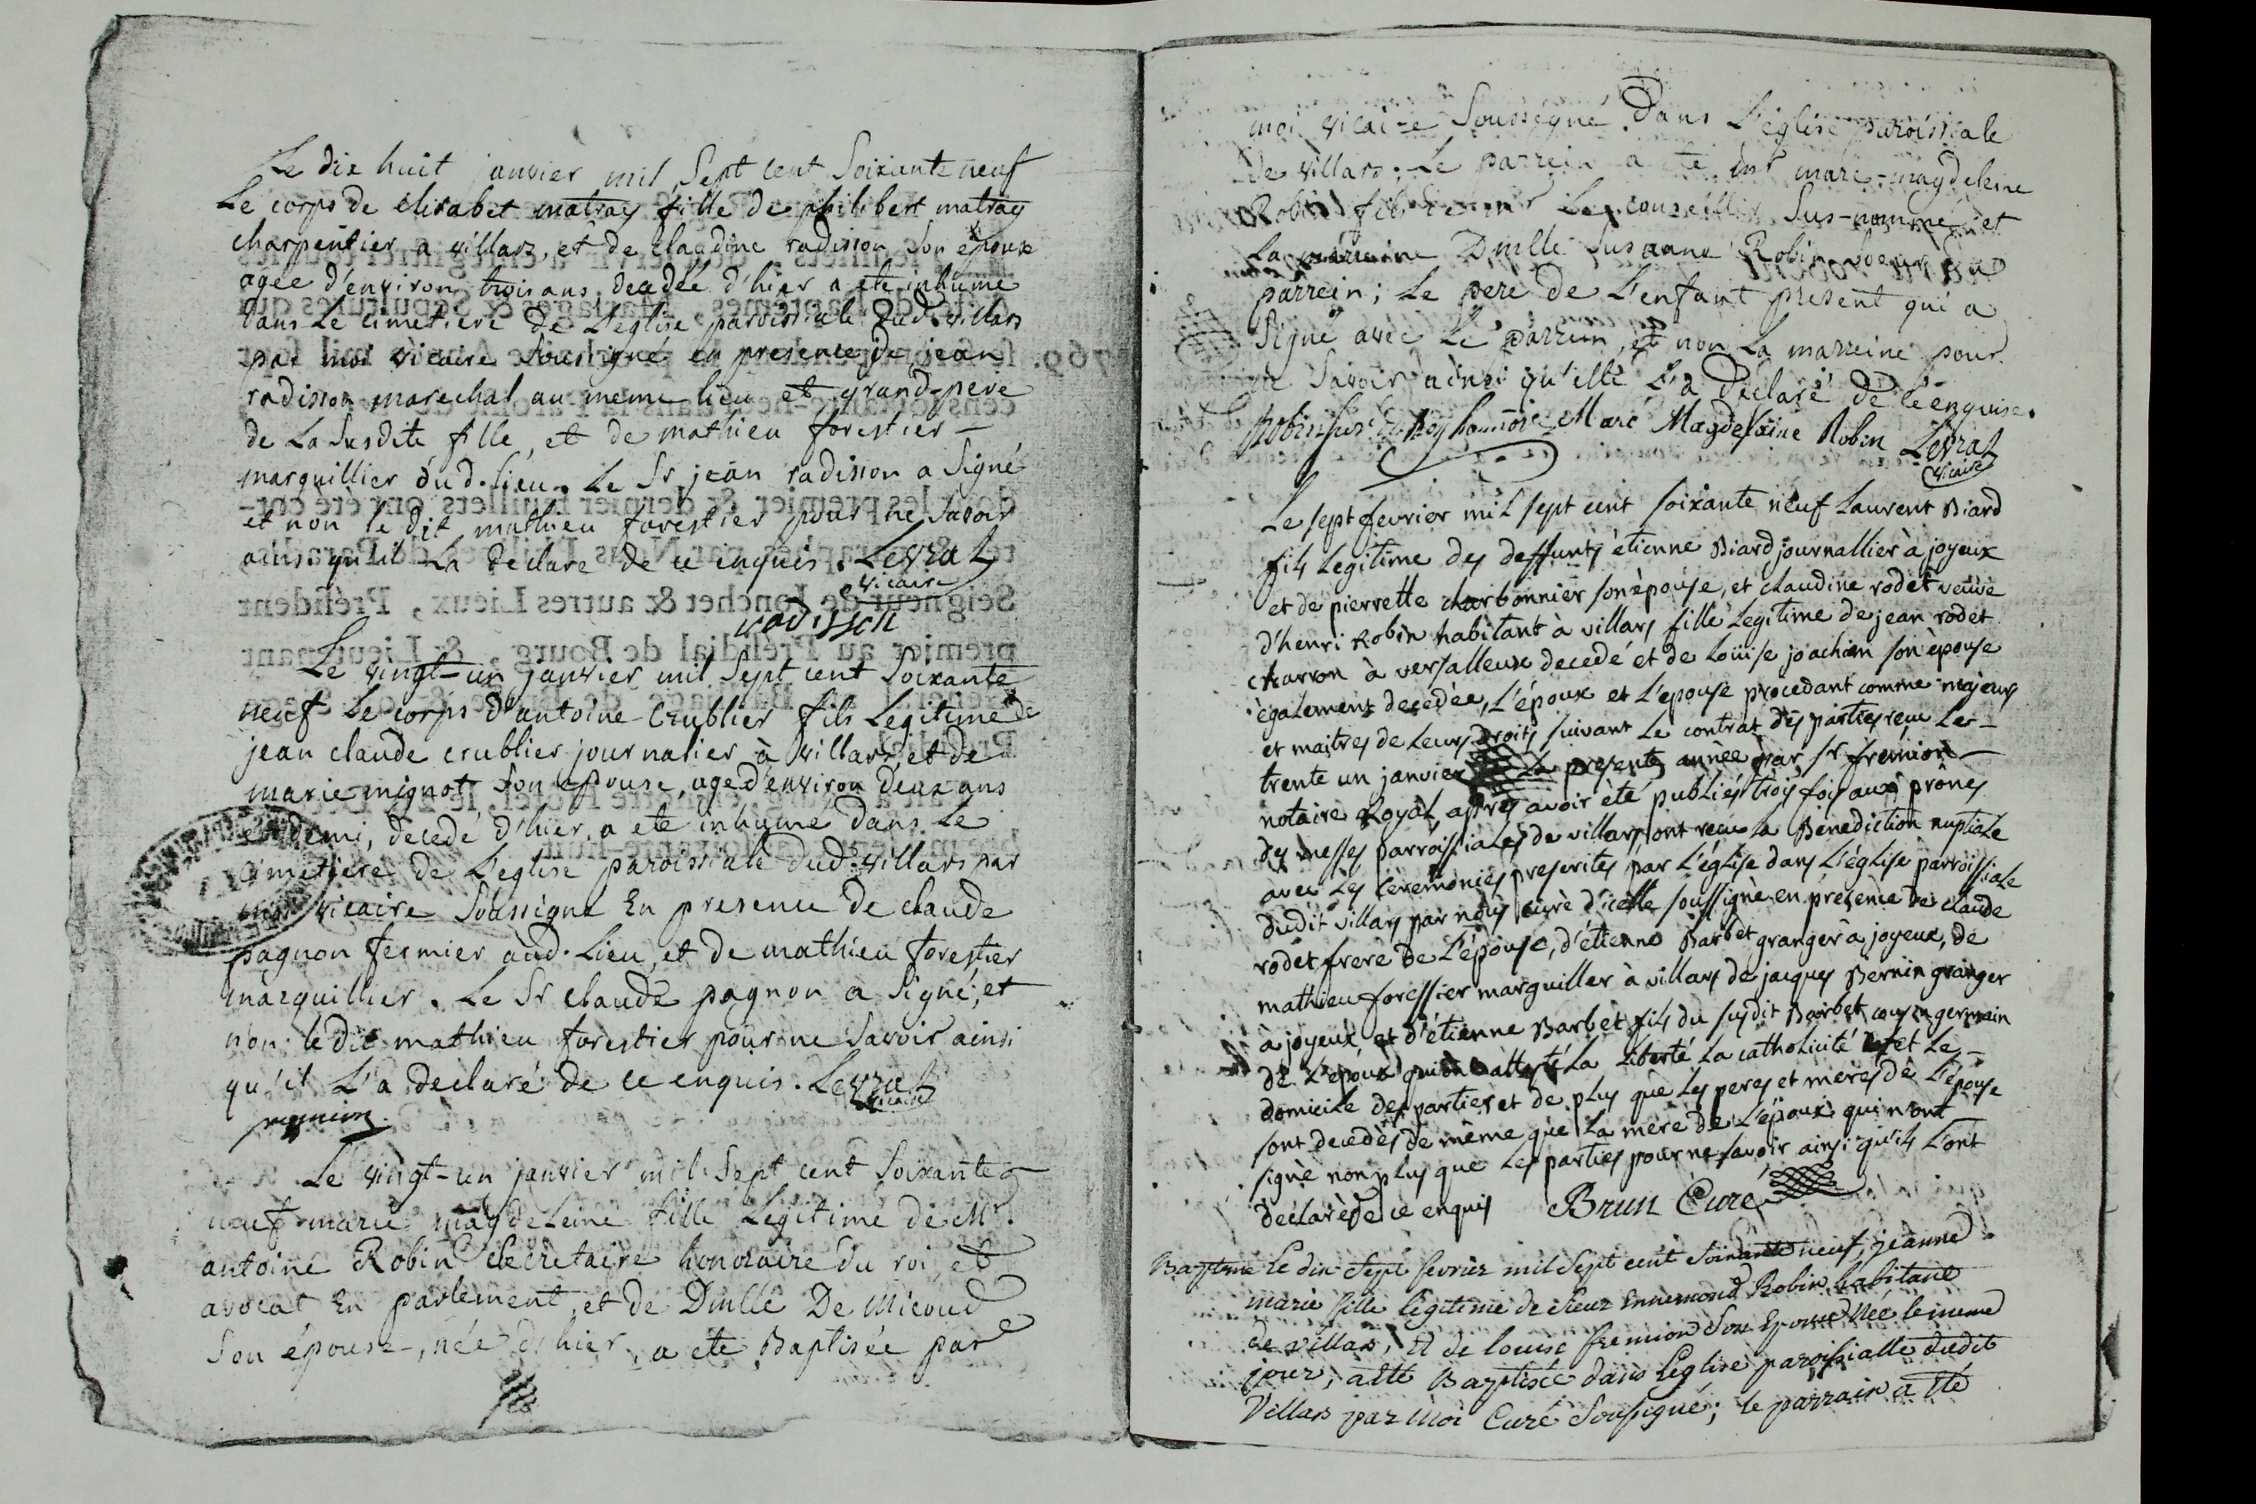 Le dix huit janvier mil Sept cent Soixante neuf
Le corps de elisabet matray fille de philibert matray
charpentier a villars, et de claudine radisson Son epouse
agee d'environ trois ans decedée d'hier a ete inhumé
dans Le cimetiere de L'eglise paroissiale dud. villars
par moi vicaire Soussigné en presence de jean
radisson marechal au meme lieu et grand-pere
de La Susdite fille, et de mathieu forestier
marguillier dud. lieu. Le Sr jean radisson a Signé
et non le dit mathieu forestier pour ne Savoir
ainsi qu'il La declaré de ce enquis. Levrat
vicaire
radisson
Le vingt-un janvier mil Sept cent Soixante
neuf Le corps d'antoine Crublier fils Legitime de
jean claude crublier journalier à villars, et de
marie mignot Son epouse, agé d'environ deux ans
et demi, decedé d'hier, a ete inhumé dans Le
cimetiere de L'eglise paroissiale dud. villars par
moi vicaire Soussigné En presence de claude
pagnon fermier aud. Lieu, et de mathieu forestier
marguillier. Le Sr claude pagnon a Signé, et
non le dit mathieu forestier pour ne Savoir ainsi
qu'il L'a declaré de ce enquis. Levrat
vicaire
Le vingt-un janvier mil Sept cent Soixante
neuf marie magdeleine fille Legitime de Mr.
antoine Robin Secretaire honoraire du roi, et
avocat En parlement, et de Dmlle De Micoud
Son épouse, née d'hier, a ete Baptisée par
moi vicaire Soussigné dans L'eglise paroissiale
de villars; Le parrein a ete mr marc-magdeleine
Robin fils de mr Le conseiller Sus-nommé, et
La marreine Dmlle Susanne Robin Soeur du
parrein; Le pere de L'enfant present qui a
Signé avec Le parrein, et non La marreine pour
ne Savoir ainsi qu'elle L'a declaré de ce enquise.
Marc Magdelaine Robin Levrat
vicaire
Le sept fevrier mil sept cent soixante neuf Laurent Biard
fils Legitime des deffunts étienne Biard journallier à joyeux
et de pierrette charbonnier son épouse, et claudine rodet veuve
d'henri Robin habitant à villars fille Legitime de jean rodet
charron à versalleux decedé et de Loüise joachim son épouse
également decedée, L'époux et L'epouse procedant comme majeurs
et maitres de Leurs droits suivant Le contrat des parties reçu Le
trente un janvier La presente année par sr fremion
notaire Royal, après avoir été publiés trois fois aux prônes
des messes parroissiales de villars, ont reçu La Benediction nuptiale
avec Les Ceremonies prescrites par L'église dans L'église parroissiale
dudit villars par nous curé d'icelle soussigné en présence de claude
rodet frere de L'épouse, d'étienne Barbet granger à joyeux, de
mathieu foressier marguiller à villars de jacques Bernin granger
à joyeux et d'étienne Barbet fils du susdit Barbet cousin germain
de L'époux qui ont attesté La Liberté La catholicité et Le
domicile des parties et de plus que Les peres et meres de L'épouse
sont decedés de même que La mere de L'époux qui n'ont
signé non plus que Les parties pour ne savoir ainsi qu'ils L'ont
declaré de ce enquis Brun Curé
Baptme Le dix Sept fevrier mil Sept cent Soixante neuf, jeanne
marie fille legitime de Sieur Ennemond Robin habitant
de villars, et de louise fremion Son Epouse Née le meme
jour, a été Baptisée dans l'eglise paroissialle dudit
Villars par Moi Curé Soussigné; le parrain a été